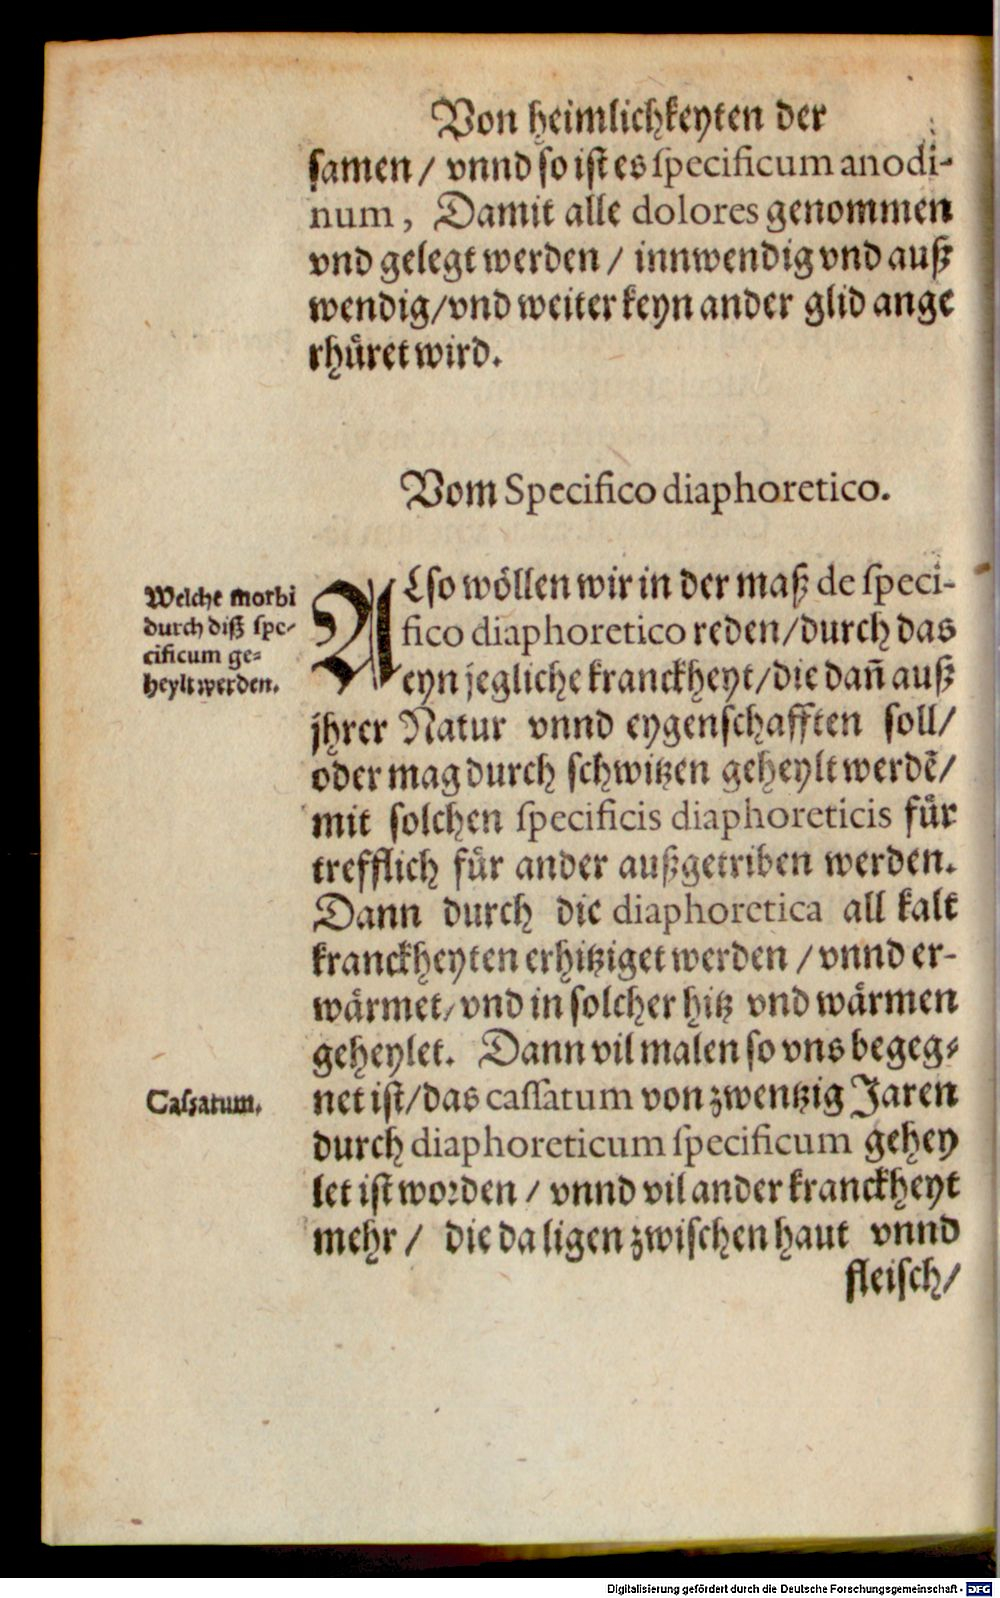 Von heimlichkeyten der
samen / vnnd so ist es specificum anodi-
num, Damit alle dolores genommen
vnd gelegt werden / innwendig vnd auß
wendig/vnd weiter keyn ander glid ange
rhüret wird.
Vom Specifico diaphoretico.
Welche morbi
durch diß spe-
cificum ge-
heylt werden.
ALso wöllen wir in der maß de speci-
fico diaphoretico reden/durch das
eyn jegliche kranckheyt/die dañ auß
jhrer Natur vnnd eygenschafften soll/
oder mag durch schwitzen geheylt werdẽ/
mit solchen specificis diaphoreticis für
trefflich für ander außgetriben werden.
Dann durch die diaphoretica all kalt
kranckheyten erhitziget werden / vnnd er-
wärmet/vnd in solcher hitz vnd wärmen
geheylet. Dann vil malen so vns begeg-
Cassatum.
net ist/das cassatum von zwentzig Jaren
durch diaphoreticum specificum gehey
let ist worden / vnnd vil ander kranckheyt
mehr / die da ligen zwischen haut vnnd
fleisch/
Digitalisierung gefördert durch die Deutsche Forschungsgemeinschaft - DFG